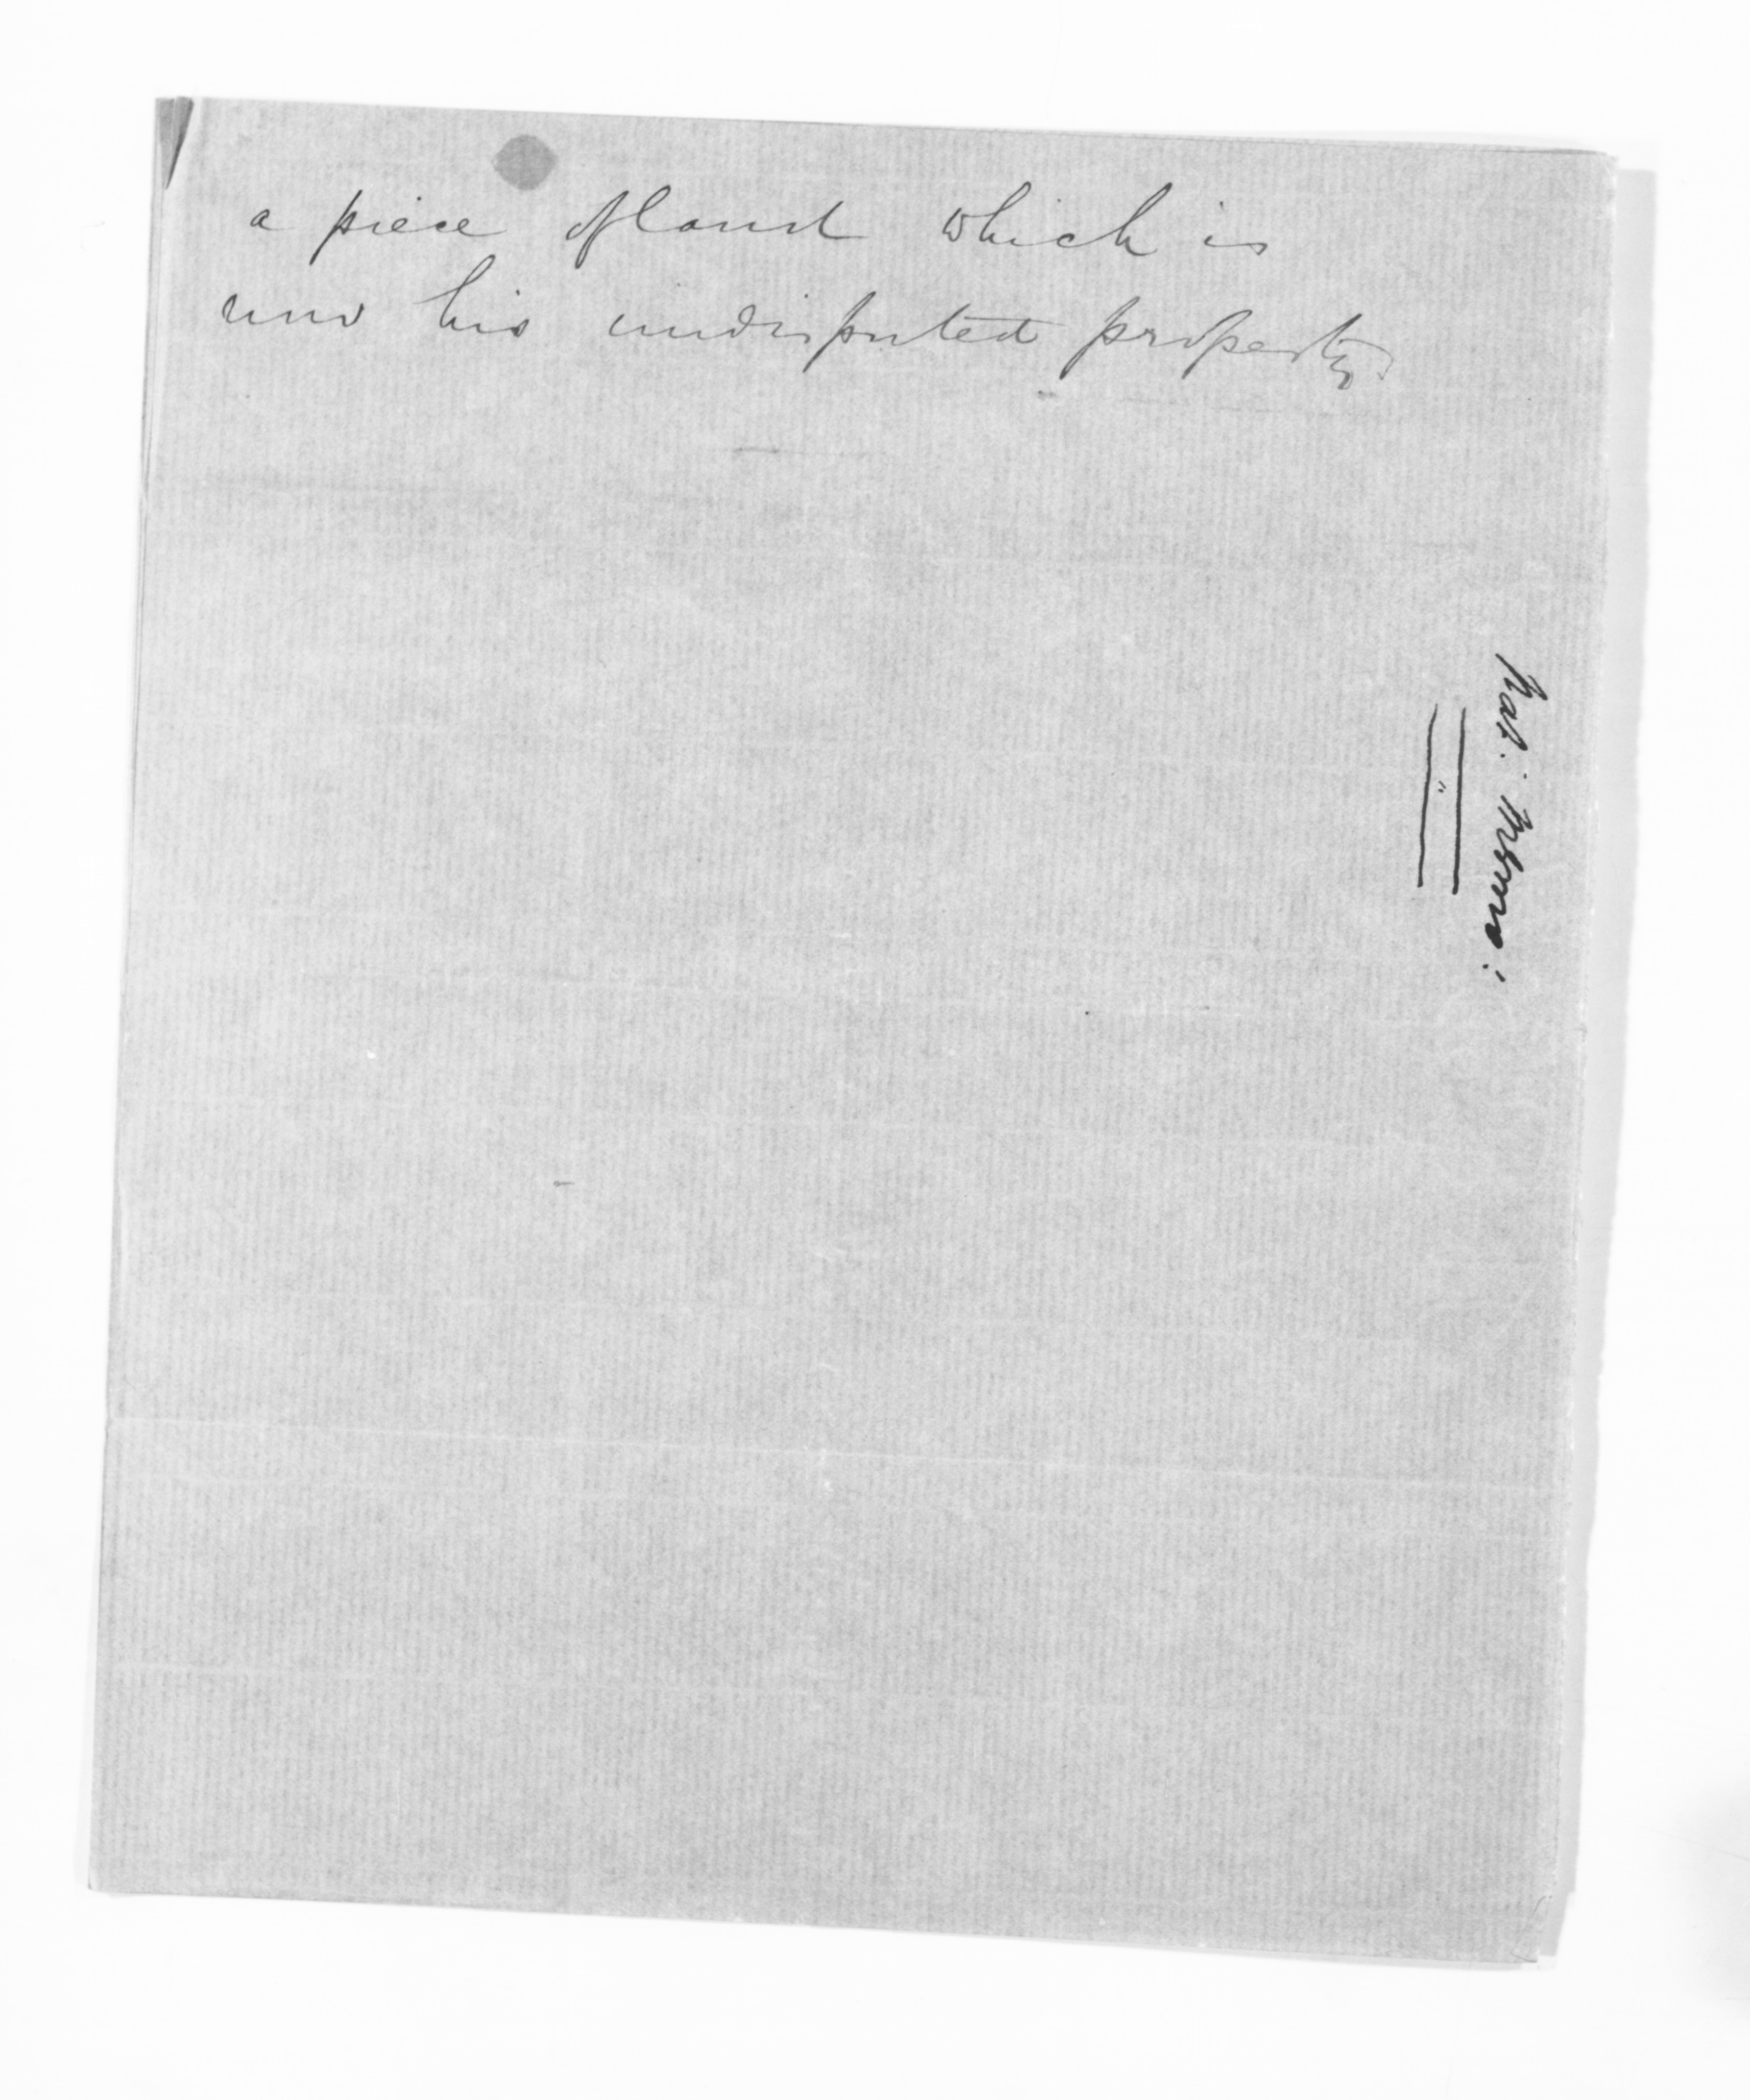 a piece of land which is
now his undisputed property.
Nat: